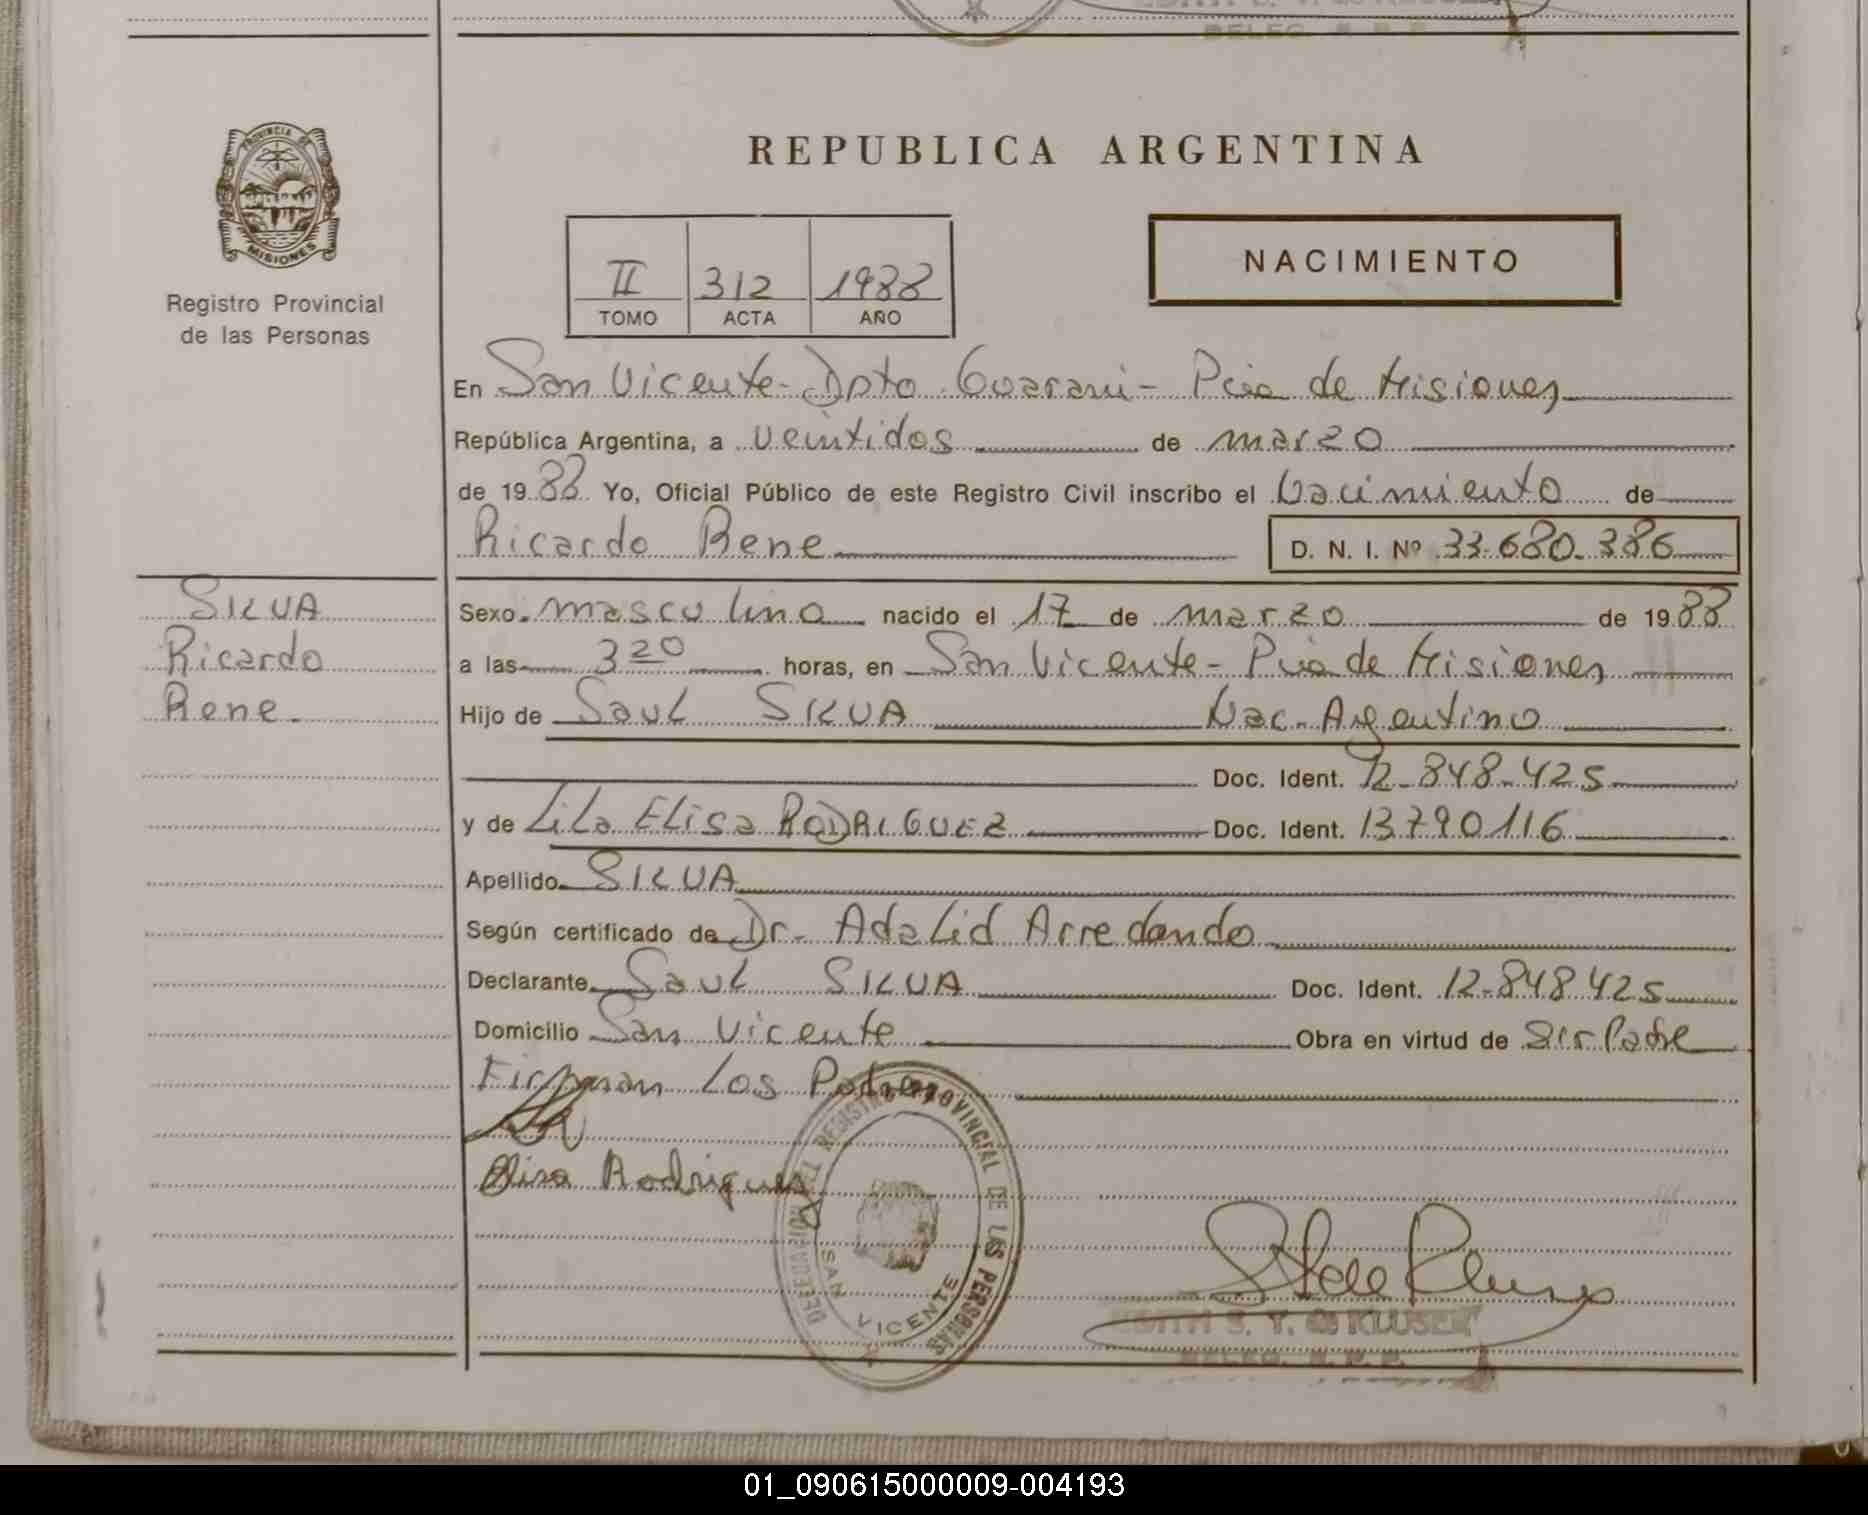 PROVINCIA DE
MISIONES
Registro Provincial
de las Personas
REPUBLICA ARGENTINA
II 312 1988
TOMO ACTA AÑO
NACIMIENTO
En San Vicente - Dpto Guarani - Pcia de Misiones
República Argentina, a veintidos de marzo
de 1988 Yo, Oficial Público de este Registro Civil inscribo el Nacimiento de
Ricardo Rene D. N. I. Nº 33.680.386
SILVA
Ricardo
Rene.
Sexo masculino nacido el 17 de marzo de 1988
a las 3 20 horas, en San Vicente - Pcia de Misiones
Hijo de Saul SILVA Nac. Argentino
Doc. Ident. 12-848-425
y de Lila Elisa RODRIGUEZ Doc. Ident. 13790116
Apellido SILVA
Según certificado de Dr. Adalid Arredondo
Declarante Saul SILVA Doc. Ident. 12-848425
Domicilio San Vicente Obra en virtud de ser Padre
Firman los Padres
Elisa Rodriguez
REGISTRO PROVINCIAL DE LAS PERSONAS
SAN VICENTE
EDITH S. T. de KLUSER
DELEG. R. P. P.
01_090615000009-004193